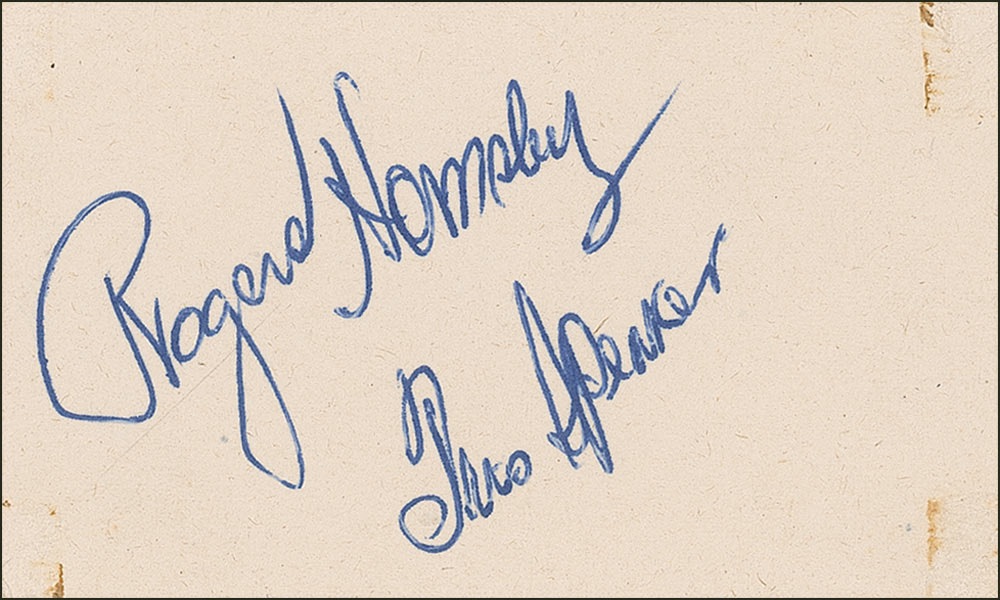 Rogers Hornsby
Tris Speaker